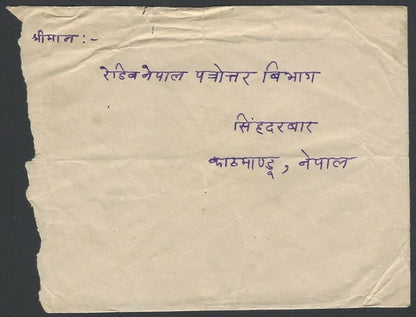 श्रीमान :-
रेडियो नेपाल पत्रोत्तर बिभाग
सिंहदरबार
काठमाण्डू, नेपाल